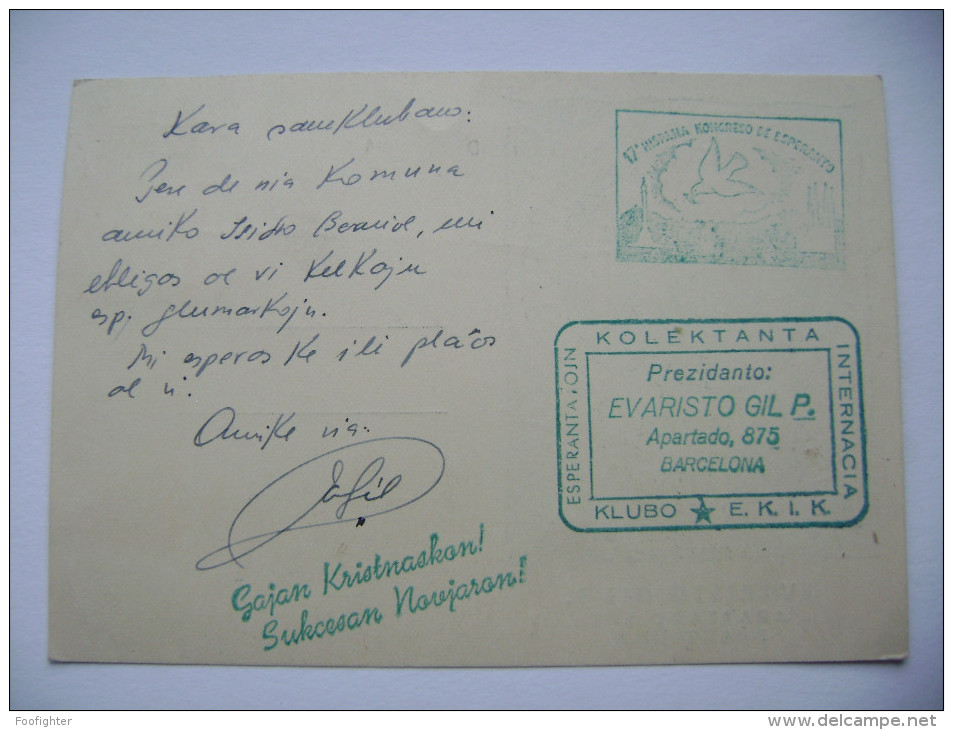 Kara samklubano:
Pere de nia Komuna
amiko Isidro, mi
obligos al vi kelkajn
esp. glumarkojn.
Mi esperas ke ili plaĉos
al vi.
Amike via:
Gajan Kristnaskon!
Sukcesan Novjaron!
17ª HISPANA KONGRESO DE ESPERANTO
KOLEKTANTA
INTERNACIA
KLUBO ★ E. K. I. K.
ESPERANTAĴOJN
Prezidanto:
EVARISTO GIL P.
Apartado, 875
BARCELONA
Foofighter
www.delcampe.net